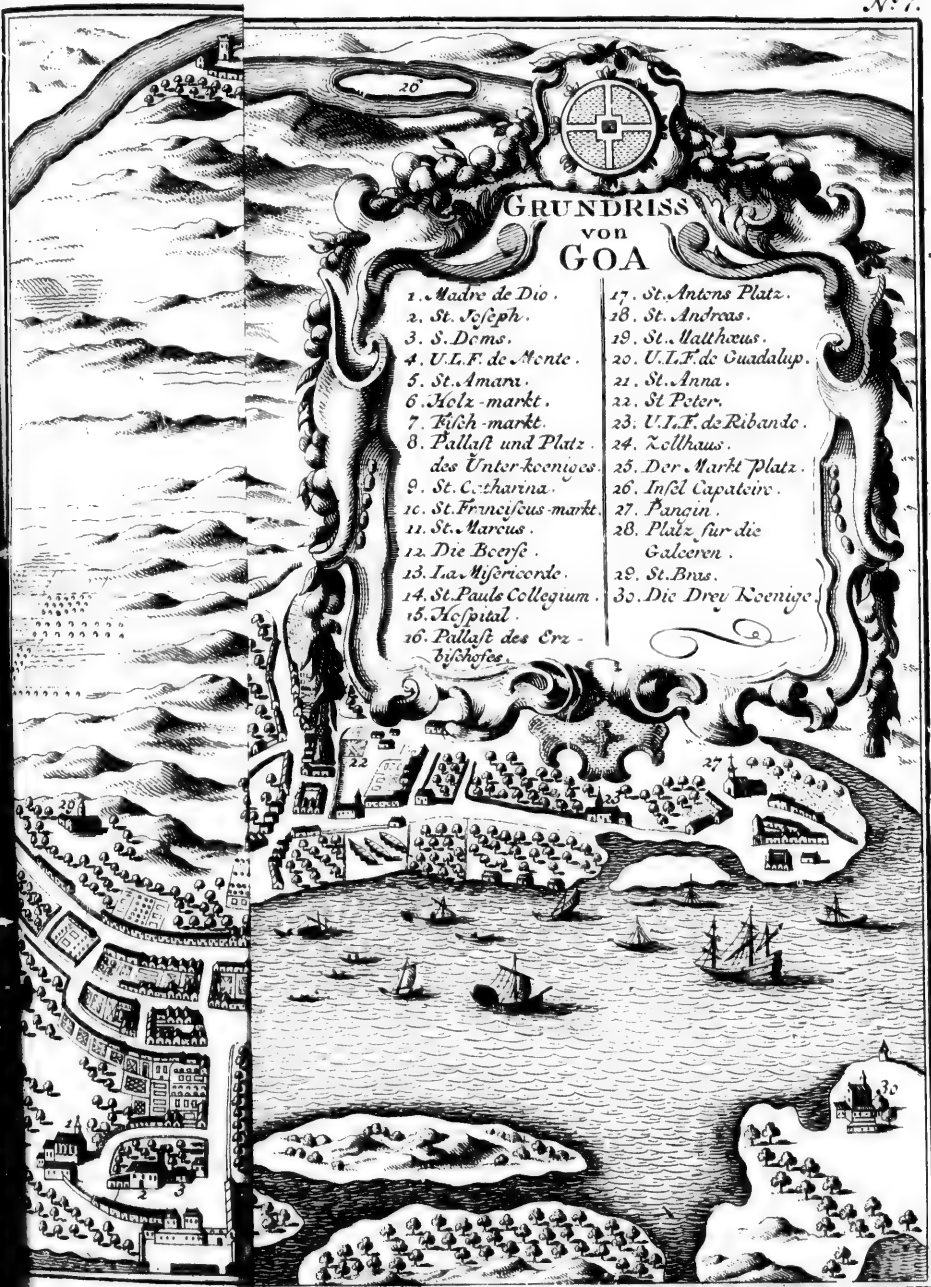 Nº 7.
26
GRUNDRISS
von
GOA
1. Madre de Dio.
2. St. Joseph.
3. S. Doms.
4. U.L.F. de Monte.
5. St. Amara.
6. Holz-markt.
7. Fisch-markt.
8. Pallast und Platz
des Unter-koeniges.
9. St. Catharina.
10. St. Franciscus-markt.
11. St. Marcus.
12. Die Boerse.
13. La Misericorde.
14. St. Pauls Collegium.
15. Hospital.
16. Pallast des Erz-
bischofes.
17. St. Antons Platz.
18. St. Andreas.
19. St. Matthæus.
20. U.L.F. de Guadalup.
21. St. Anna.
22. St Peter.
23. U.L.F. de Ribando.
24. Zollhaus.
25. Der Markt Platz.
26. Insel Capateire.
27. Pangin.
28. Platz fur die
Galeeren.
29. St. Bras.
30. Die Drey Koenige.
22
27
30
1
2
3